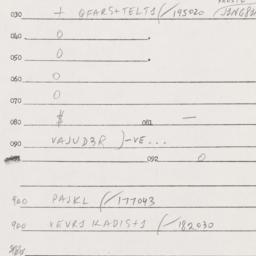 030 + QFARS+TELT1(/195020
040 0
050 0
060 0
070 0
080 $ 081 —
090 VAJUD3R )-VE...
092 0
900 PAJKL (/177043
900 VEVR1 KADIS+1 (/182030